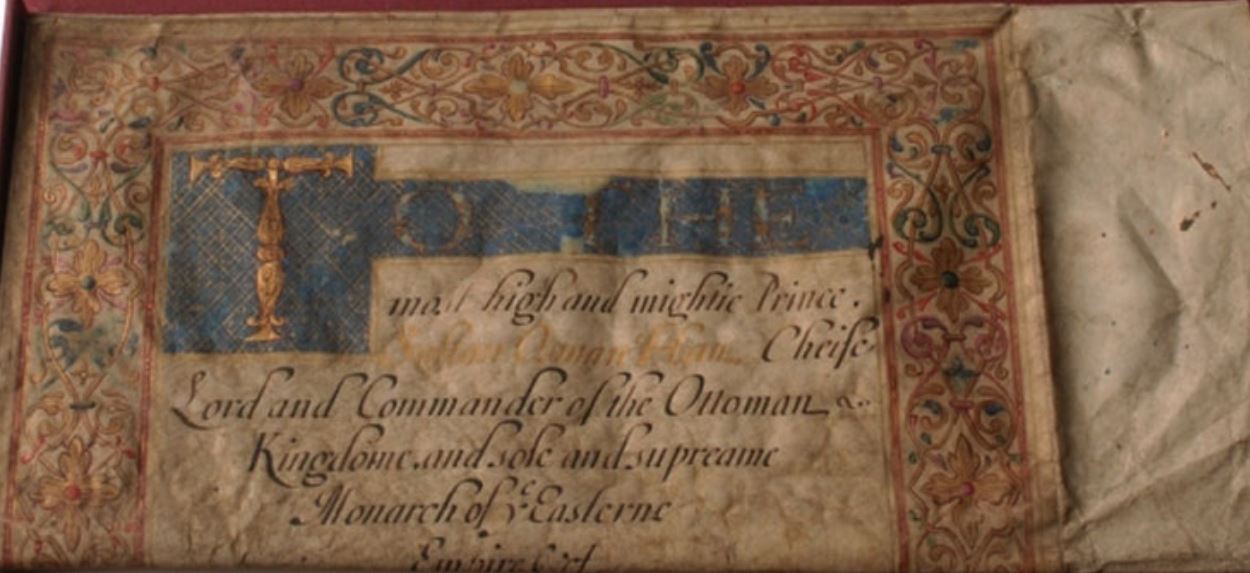 TO THE
most high and mightie Prince.
Sultan Osman Cheife
Lord and Commander of the Ottoman
Kingdome. and sole and supreame
Monarch of yᵉ Easterne
Empire &ct